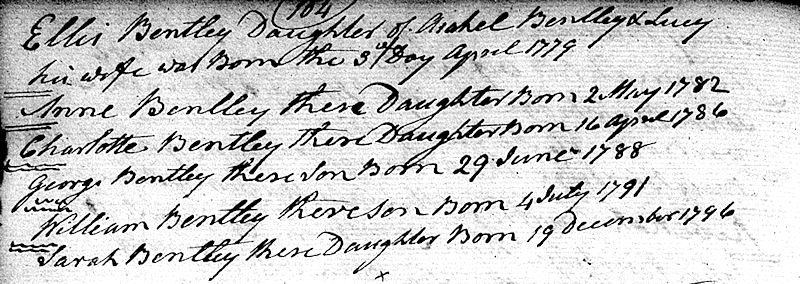 104
Ellis Bentley Daughter of Asahel Bentley & Lucy
his wife was Born the 3d Day April 1779
Anne Bentley there Daughter Born 2 May 1782
Charlotte Bentley there Daughter Born 16 April 1786
George Bentley there Son Born 29 June 1788
William Bentley there Son Born 4 July 1791
Sarah Bentley there Daughter Born 19 December 1796
x